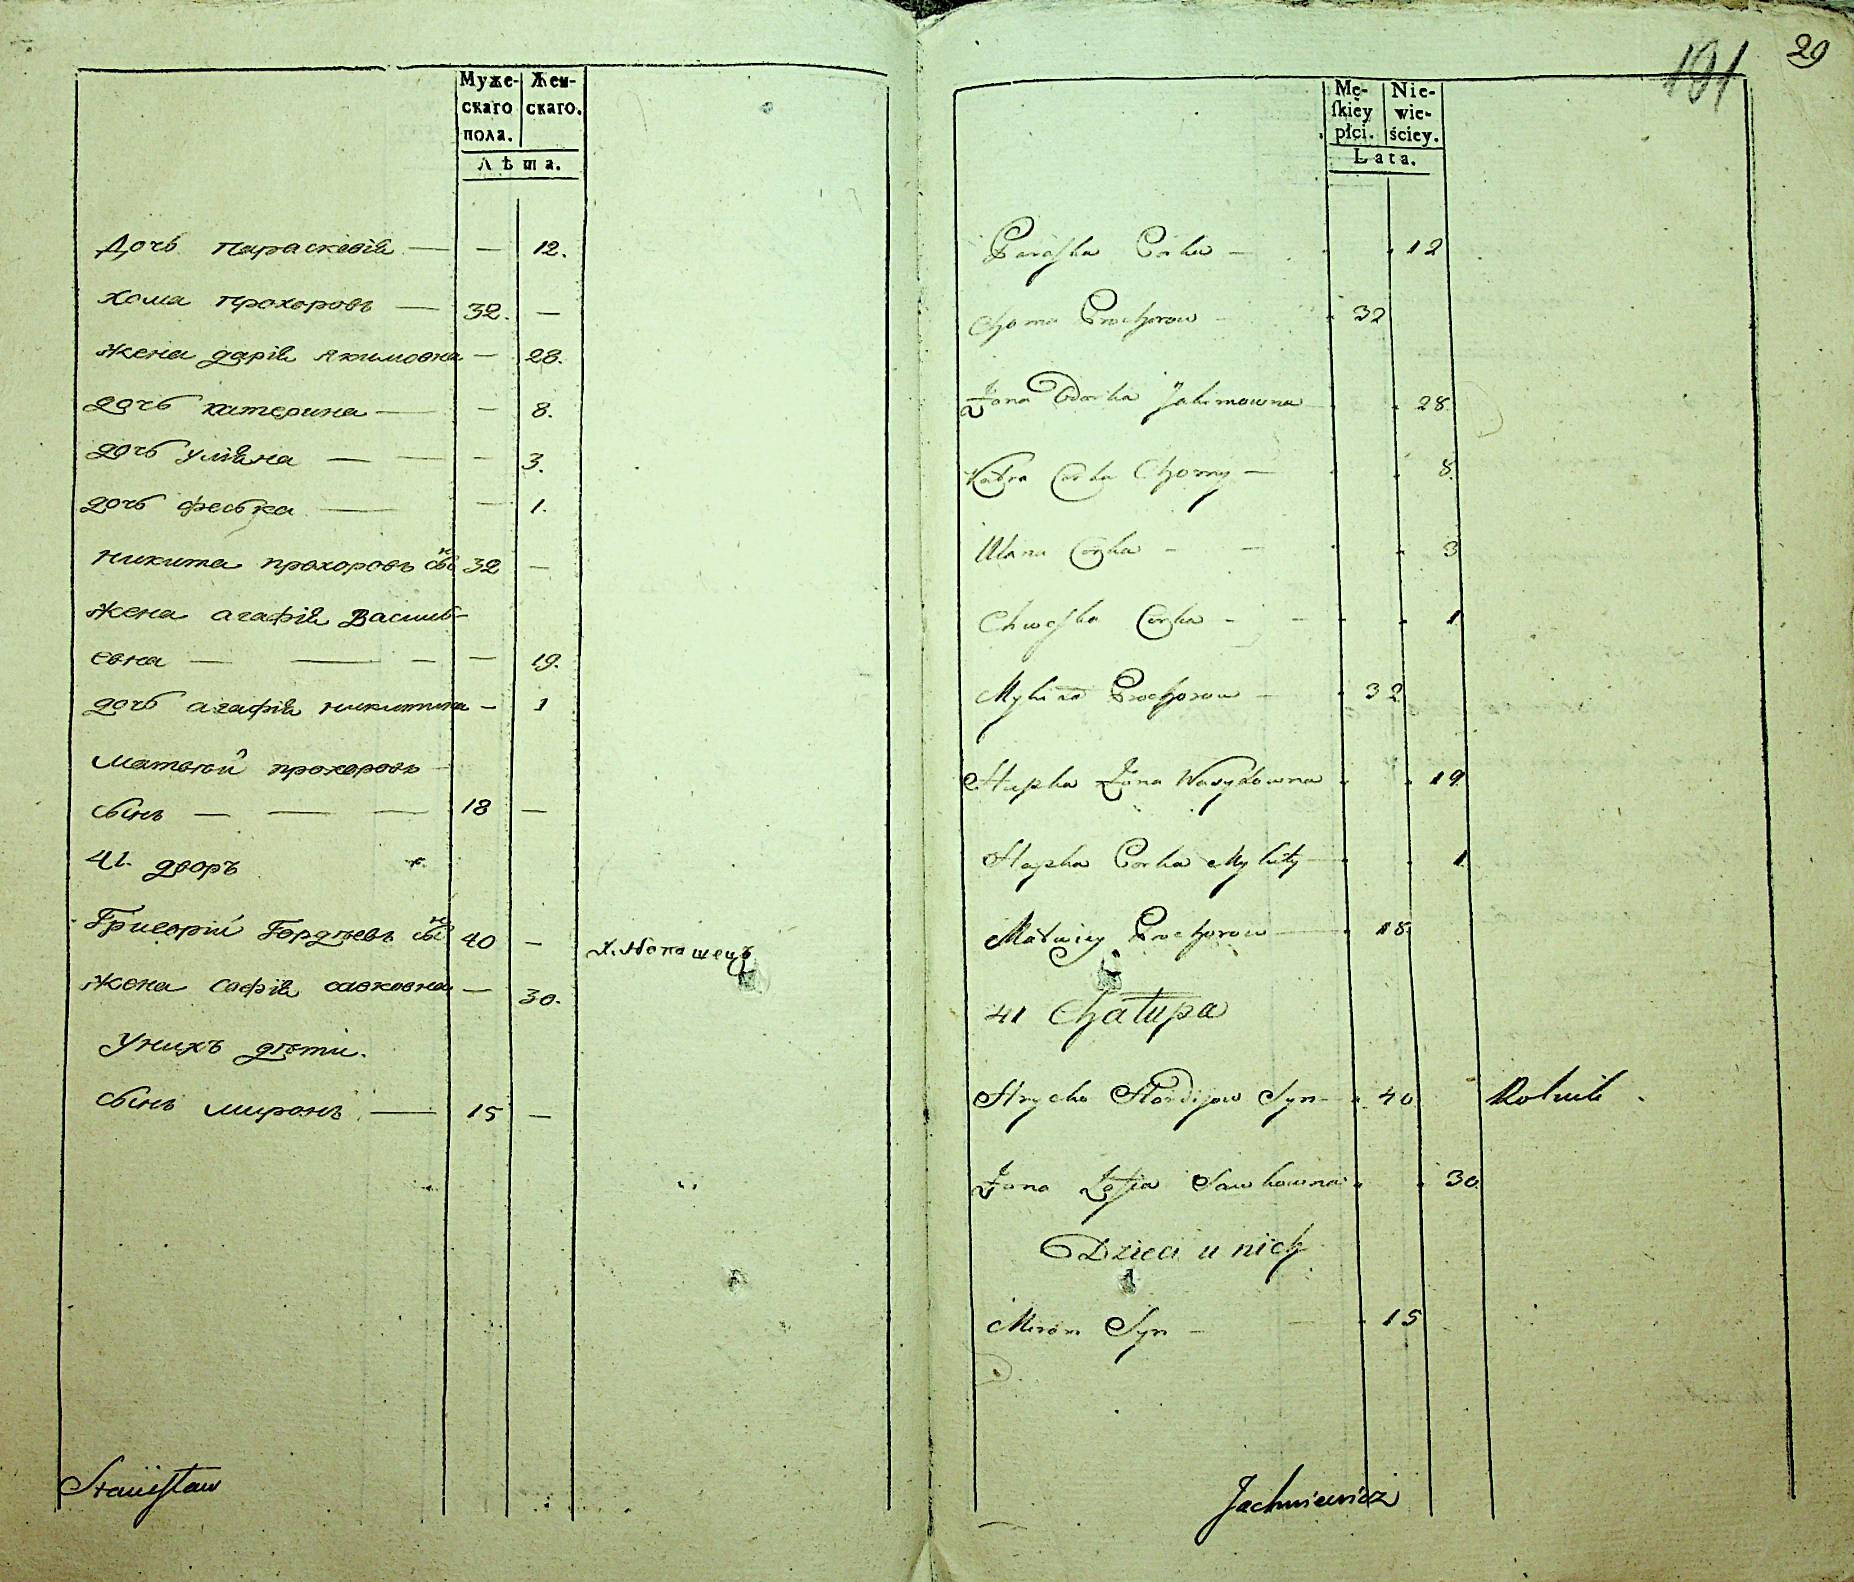 191 29
Муже- Жен-
скаго скаго.
пола.
Лѣта.
Дочь Параскевія — — 12.
Хома Прохоровъ — 32. —
жена дарія Якимовна — 28.
дочь катерина — — 8.
дочь уліяна — — — 3.
дочь феська — — 1.
никита прохоровъ сынъ 32 —
жена агафія Василь-
евна — — — — 19.
дочь агафія никитина — 1
матвѣй прохоровъ —
сынъ — — — 18 —
41. дворъ
Григорій Гордѣевъ сынъ 40 —
жена Софія савковна — 30.
У нихъ дѣти.
сынъ миронъ — 15 —
Stanisław
Mę- Nie-
skiey wie-
płci. ściey.
Lata.
Paraska Corka — 12
Choma Prochorow — 32
Żona Odarka Jakimowna 28
Katra Corka Chomy — 8.
Ulana Corka — — 3
Chweska Corka — — 1
Mykita Prochorow — 32
Hapka Żona Wasylowna 19
Hapka Corka Mykity — 1
Matwiey Prochorow — 18.
41 Chałupa
Hrycko Hordijow Syn — 40 Rolnik .
Żona Zofia Sawkowna 30
Dzieci u nich
Miron Syn — — 15
Jachniewicz